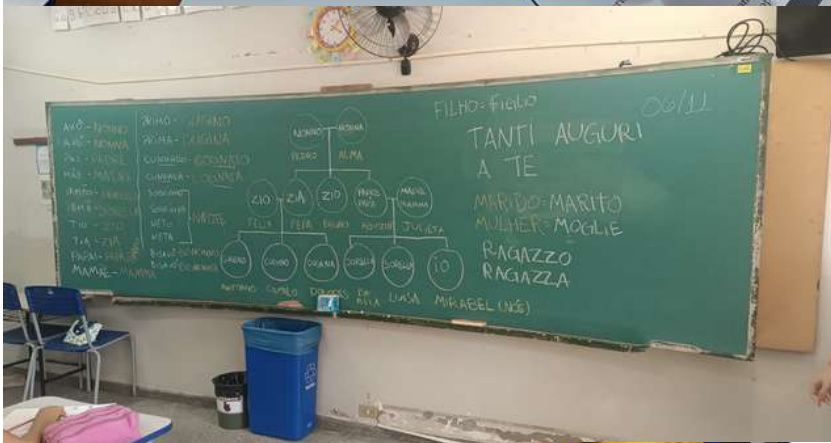 AVÔ - NONNO
AVÓ - NONNA
PAI - PADRE
MÃE - MADRE
IRMÃO -
IRMÃ - SORELLA
TIO - ZIO
TIA - ZIA
PAPAI -
MAMÃE - MAMMA
PRIMO - CUGINO
PRIMA - CUGINA
CUNHADO - COGNATO
CUNHADA - COGNATA
SOBRINHO
SOBRINHA
NETO
NETA
NIPOTE
NONNO
NONNA
PEDRO
ALMA
ZIO
ZIA
ZIO
PADRE
MADRE
MAMMA
FELIX
PEPA
BRUNO
AGUSTIN
JULIETA
CUGINO
CUGINO
CUGINA
SORELLA
SORELLA
IO
ANTONIO
CAMILO
DOLORES
LUISA
MIRABEL (NÓS)
FILHO = FIGLIO
06/11
TANTI AUGURI
A TE
MARIDO = MARITO
MULHER = MOGLIE
RAGAZZO
RAGAZZA